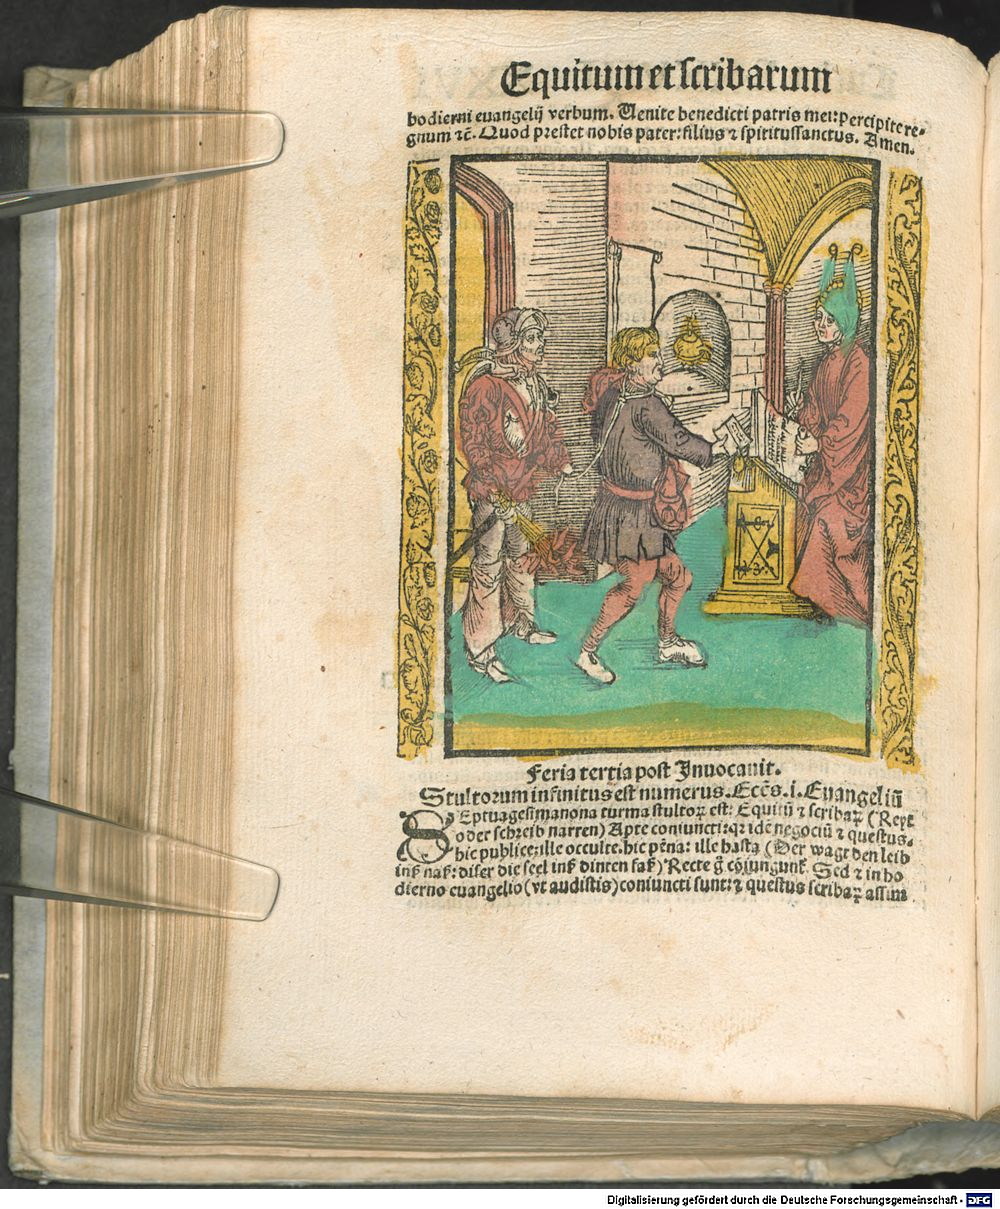 Equitum et scribarum
hodierni euangelij verbum. Uenite benedicti patris mei: percipite re-
gnum ⁊c̄. Quod prestet nobis pater: filius ⁊ spiritussanctus. Amen.
Feria tertia post Inuocauit.
Stultorum infinitus est numerus. Ecc̄s. i. Euangeliū
SEptuagesimanona turma stultoꝝ est: Equitū ⁊ scribaꝝ (Reyt̄
oder schreib narren) Apte coniuncti: qꝛ idē negociū ⁊ questus.
hic publice: ille occulte. hic pēna: ille hasta (Der wagt den leib
inß naß: diser die seel inß dinten faß) Recte ḡ cōiungunt̄. Sed ⁊ in ho
dierno euangelio (vt audistis) coniuncti sunt: ⁊ questus scribaꝝ assim
Digitalisierung gefördert durch die Deutsche Forschungsgemeinschaft - DFG